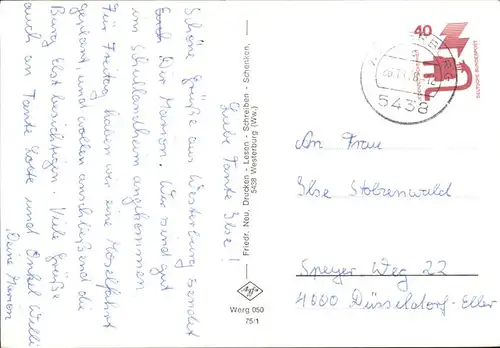 Liebe Tante Ilse!
Schöne Grüße aus Westerburg sendet
Dir Marion. Wir sind gut
im Schullandheim angekommen.
Für Freitag haben wir eine Moselfahrt
geplant, und wollen anschließend die
Burg Elst besichtigen. Viele Grüße
auch an Tante Lotte und Onkel Willi
Deine Marion
Friedr. Neu, Drucken - Lesen - Schreiben - Schenken,
5438 Westerburg (Ww.)
Agfa
Werg 050
75/1
40
DEUTSCHE BUNDESPOST
5438
An Frau
Ilse Stolzenwald
Speyer Weg 22
4000 Düsseldorf-Eller